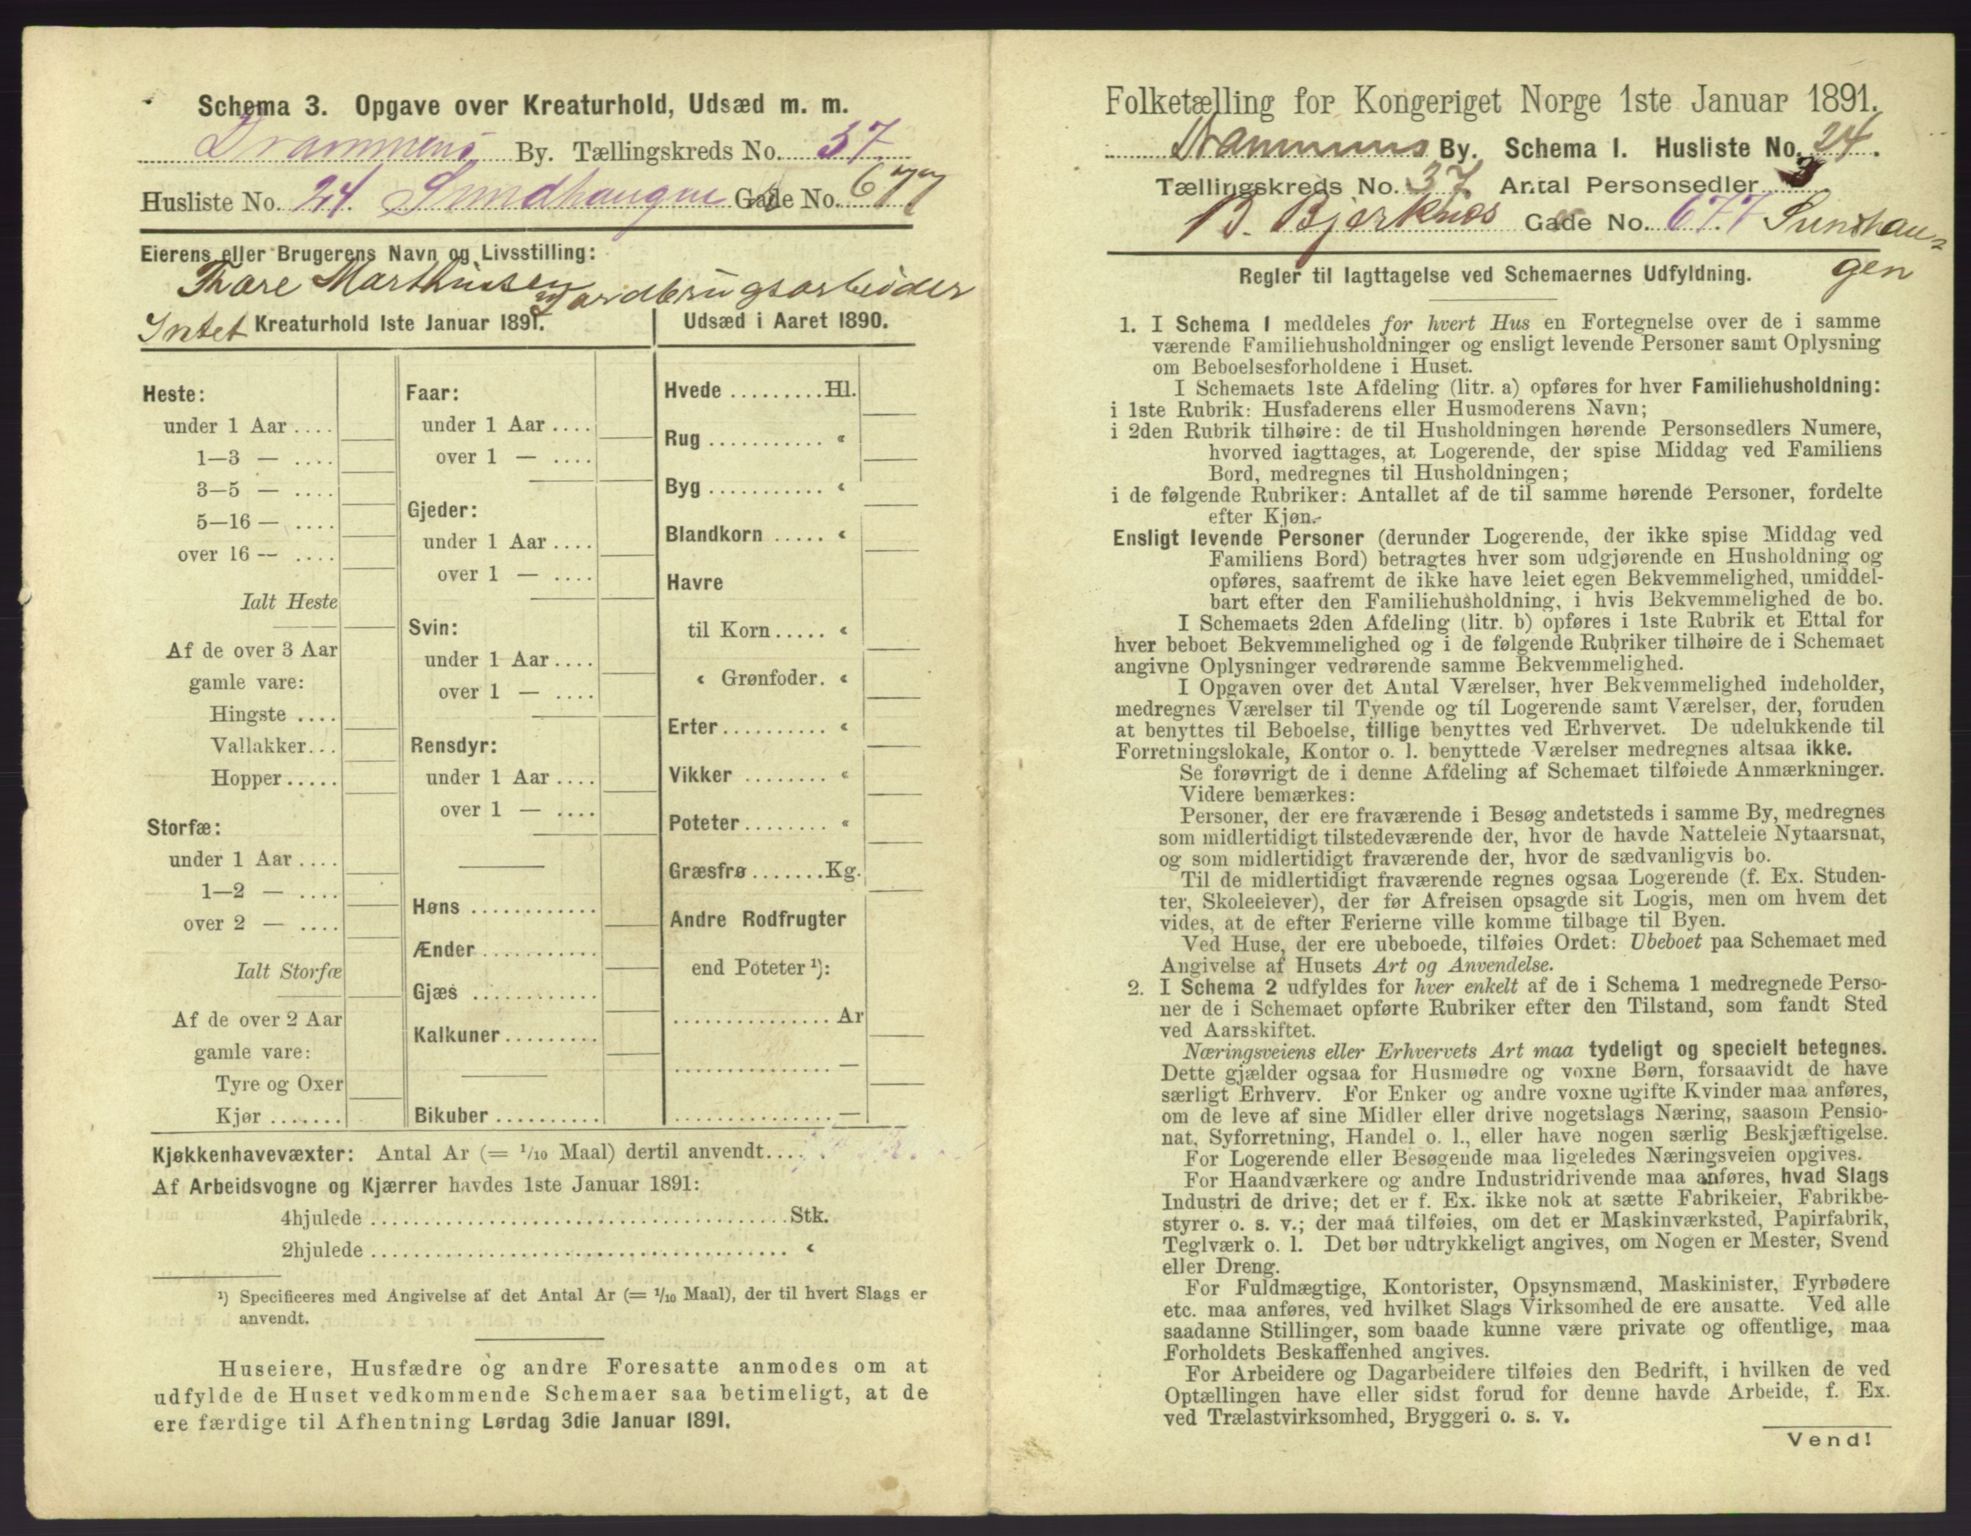 Schema 3. Opgave over Kreaturhold, Udsæd m. m.
Drammens By. Tællingskreds No. 37
Husliste No. 24. Sundhaugen Gade No. 677
Eierens eller Brugerens Navn og Livsstilling:
Thore Marthinsen Jordbrugsarbeider
Intet Kreaturhold 1ste Januar 1891.
Heste:
under 1 Aar ....
1—3 — ....
3—5 — ....
5—16 — ....
over 16 — ....
Ialt Heste
Af de over 3 Aar
gamle vare:
Hingste ....
Vallakker...
Hopper .....
Storfæ:
under 1 Aar ....
1—2 — ....
over 2 — ....
Ialt Storfæ
Af de over 2 Aar
gamle vare:
Tyre og Oxer
Kjør .......
Faar:
under 1 Aar ....
over 1 — ....
Gjeder:
under 1 Aar ....
over 1 — ....
Svin:
under 1 Aar ....
over 1 — ....
Rensdyr:
under 1 Aar ....
over 1 — ....
Høns ............
Ænder ...........
Gjæs ............
Kalkuner .........
Bikuber ..........
Udsæd i Aaret 1890.
Hvede ......... Hl.
Rug ........... «
Byg ........... «
Blandkorn ..... «
Havre
til Korn ..... «
« Grønfoder. «
Erter .......... «
Vikker ......... «
Poteter ........ «
Græsfrø ....... Kg.
Andre Rodfrugter
end Poteter ¹):
............... Ar
............... —
............... —
Kjøkkenhavevæxter: Antal Ar (= 1/10 Maal) dertil anvendt....
Af Arbeidsvogne og Kjærrer havdes 1ste Januar 1891:
4hjulede ........................................ Stk.
2hjulede ........................................ «
¹) Specificeres med Angivelse af det Antal Ar (= 1/10 Maal), der til hvert Slags er
anvendt.
Huseiere, Husfædre og andre Foresatte anmodes om at
udfylde de Huset vedkommende Schemaer saa betimeligt, at de
ere færdige til Afhentning Lørdag 3die Januar 1891.
Folketælling for Kongeriget Norge 1ste Januar 1891.
Drammens By. Schema 1. Husliste No. 24.
Tællingskreds No. 37. Antal Personsedler 3
B. Bjerknæs Gade No. 677 Sundhau-
gen
Regler til Iagttagelse ved Schemaernes Udfyldning.
1. I Schema 1 meddeles for hvert Hus en Fortegnelse over de i samme
værende Familiehusholdninger og ensligt levende Personer samt Oplysning
om Beboelsesforholdene i Huset.
I Schemaets 1ste Afdeling (litr. a) opføres for hver Familiehusholdning:
i 1ste Rubrik: Husfaderens eller Husmoderens Navn;
i 2den Rubrik tilhøire: de til Husholdningen hørende Personsedlers Numere,
hvorved iagttages, at Logerende, der spise Middag ved Familiens
Bord, medregnes til Husholdningen;
i de følgende Rubriker: Antallet af de til samme hørende Personer, fordelte
efter Kjøn.
Ensligt levende Personer (derunder Logerende, der ikke spise Middag ved
Familiens Bord) betragtes hver som udgjørende en Husholdning og
opføres, saafremt de ikke have leiet egen Bekvemmelighed, umiddel-
bart efter den Familiehusholdning, i hvis Bekvemmelighed de bo.
I Schemaets 2den Afdeling (litr. b) opføres i 1ste Rubrik et Ettal for
hver beboet Bekvemmelighed og i de følgende Rubriker tilhøire de i Schemaet
angivne Oplysninger vedrørende samme Bekvemmelighed.
I Opgaven over det Antal Værelser, hver Bekvemmelighed indeholder,
medregnes Værelser til Tyende og til Logerende samt Værelser, der, foruden
at benyttes til Beboelse, tillige benyttes ved Erhvervet. De udelukkende til
Forretningslokale, Kontor o. l. benyttede Værelser medregnes altsaa ikke.
Se forøvrigt de i denne Afdeling af Schemaet tilføiede Anmærkninger.
Videre bemærkes:
Personer, der ere fraværende i Besøg andetsteds i samme By, medregnes
som midlertidigt tilstedeværende der, hvor de havde Natteleie Nytaarsnat,
og som midlertidigt fraværende der, hvor de sædvanligvis bo.
Til de midlertidigt fraværende regnes ogsaa Logerende (f. Ex. Studen-
ter, Skoleelever), der før Afreisen opsagde sit Logis, men om hvem det
vides, at de efter Ferierne ville komme tilbage til Byen.
Ved Huse, der ere ubeboede, tilføies Ordet: Ubeboet paa Schemaet med
Angivelse af Husets Art og Anvendelse.
2. I Schema 2 udfyldes for hver enkelt af de i Schema 1 medregnede Perso-
ner de i Schemaet opførte Rubriker efter den Tilstand, som fandt Sted
ved Aarsskiftet.
Næringsveiens eller Erhvervets Art maa tydeligt og specielt betegnes.
Dette gjælder ogsaa for Husmødre og voxne Børn, forsaavidt de have
særligt Erhverv. For Enker og andre voxne ugifte Kvinder maa anføres,
om de leve af sine Midler eller drive nogetslags Næring, saasom Pensio-
nat, Syforretning, Handel o. l., eller have nogen særlig Beskjæftigelse.
For Logerende eller Besøgende maa ligeledes Næringsveien opgives.
For Haandværkere og andre Industridrivende maa anføres, hvad Slags
Industri de drive; det er f. Ex. ikke nok at sætte Fabrikeier, Fabrikbe-
styrer o. s. v.; der maa tilføies, om det er Maskinværksted, Papirfabrik,
Teglværk o. l. Det bør udtrykkeligt angives, om Nogen er Mester, Svend
eller Dreng.
For Fuldmægtige, Kontorister, Opsynsmænd, Maskinister, Fyrbødere
etc. maa anføres, ved hvilket Slags Virksomhed de ere ansatte. Ved alle
saadanne Stillinger, som baade kunne være private og offentlige, maa
Forholdets Beskaffenhed angives.
For Arbeidere og Dagarbeidere tilføies den Bedrift, i hvilken de ved
Optællingen have eller sidst forud for denne havde Arbeide, f. Ex.
ved Trælastvirksomhed, Bryggeri o. s. v.
Vend!